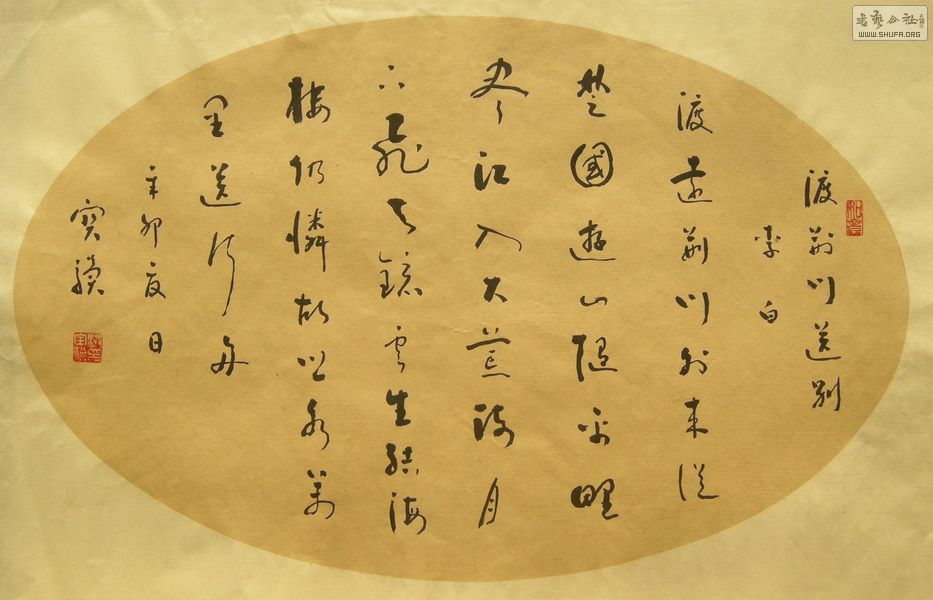 書藝公社
WWW.SHUFA.ORG
渡荆门送别
李白
渡远荆门外来從
楚國遊山隨平野
尽江入大荒流月
下飛天鏡雲生結海
樓仍憐故鄉水萬
里送行舟
辛卯夏日
寶